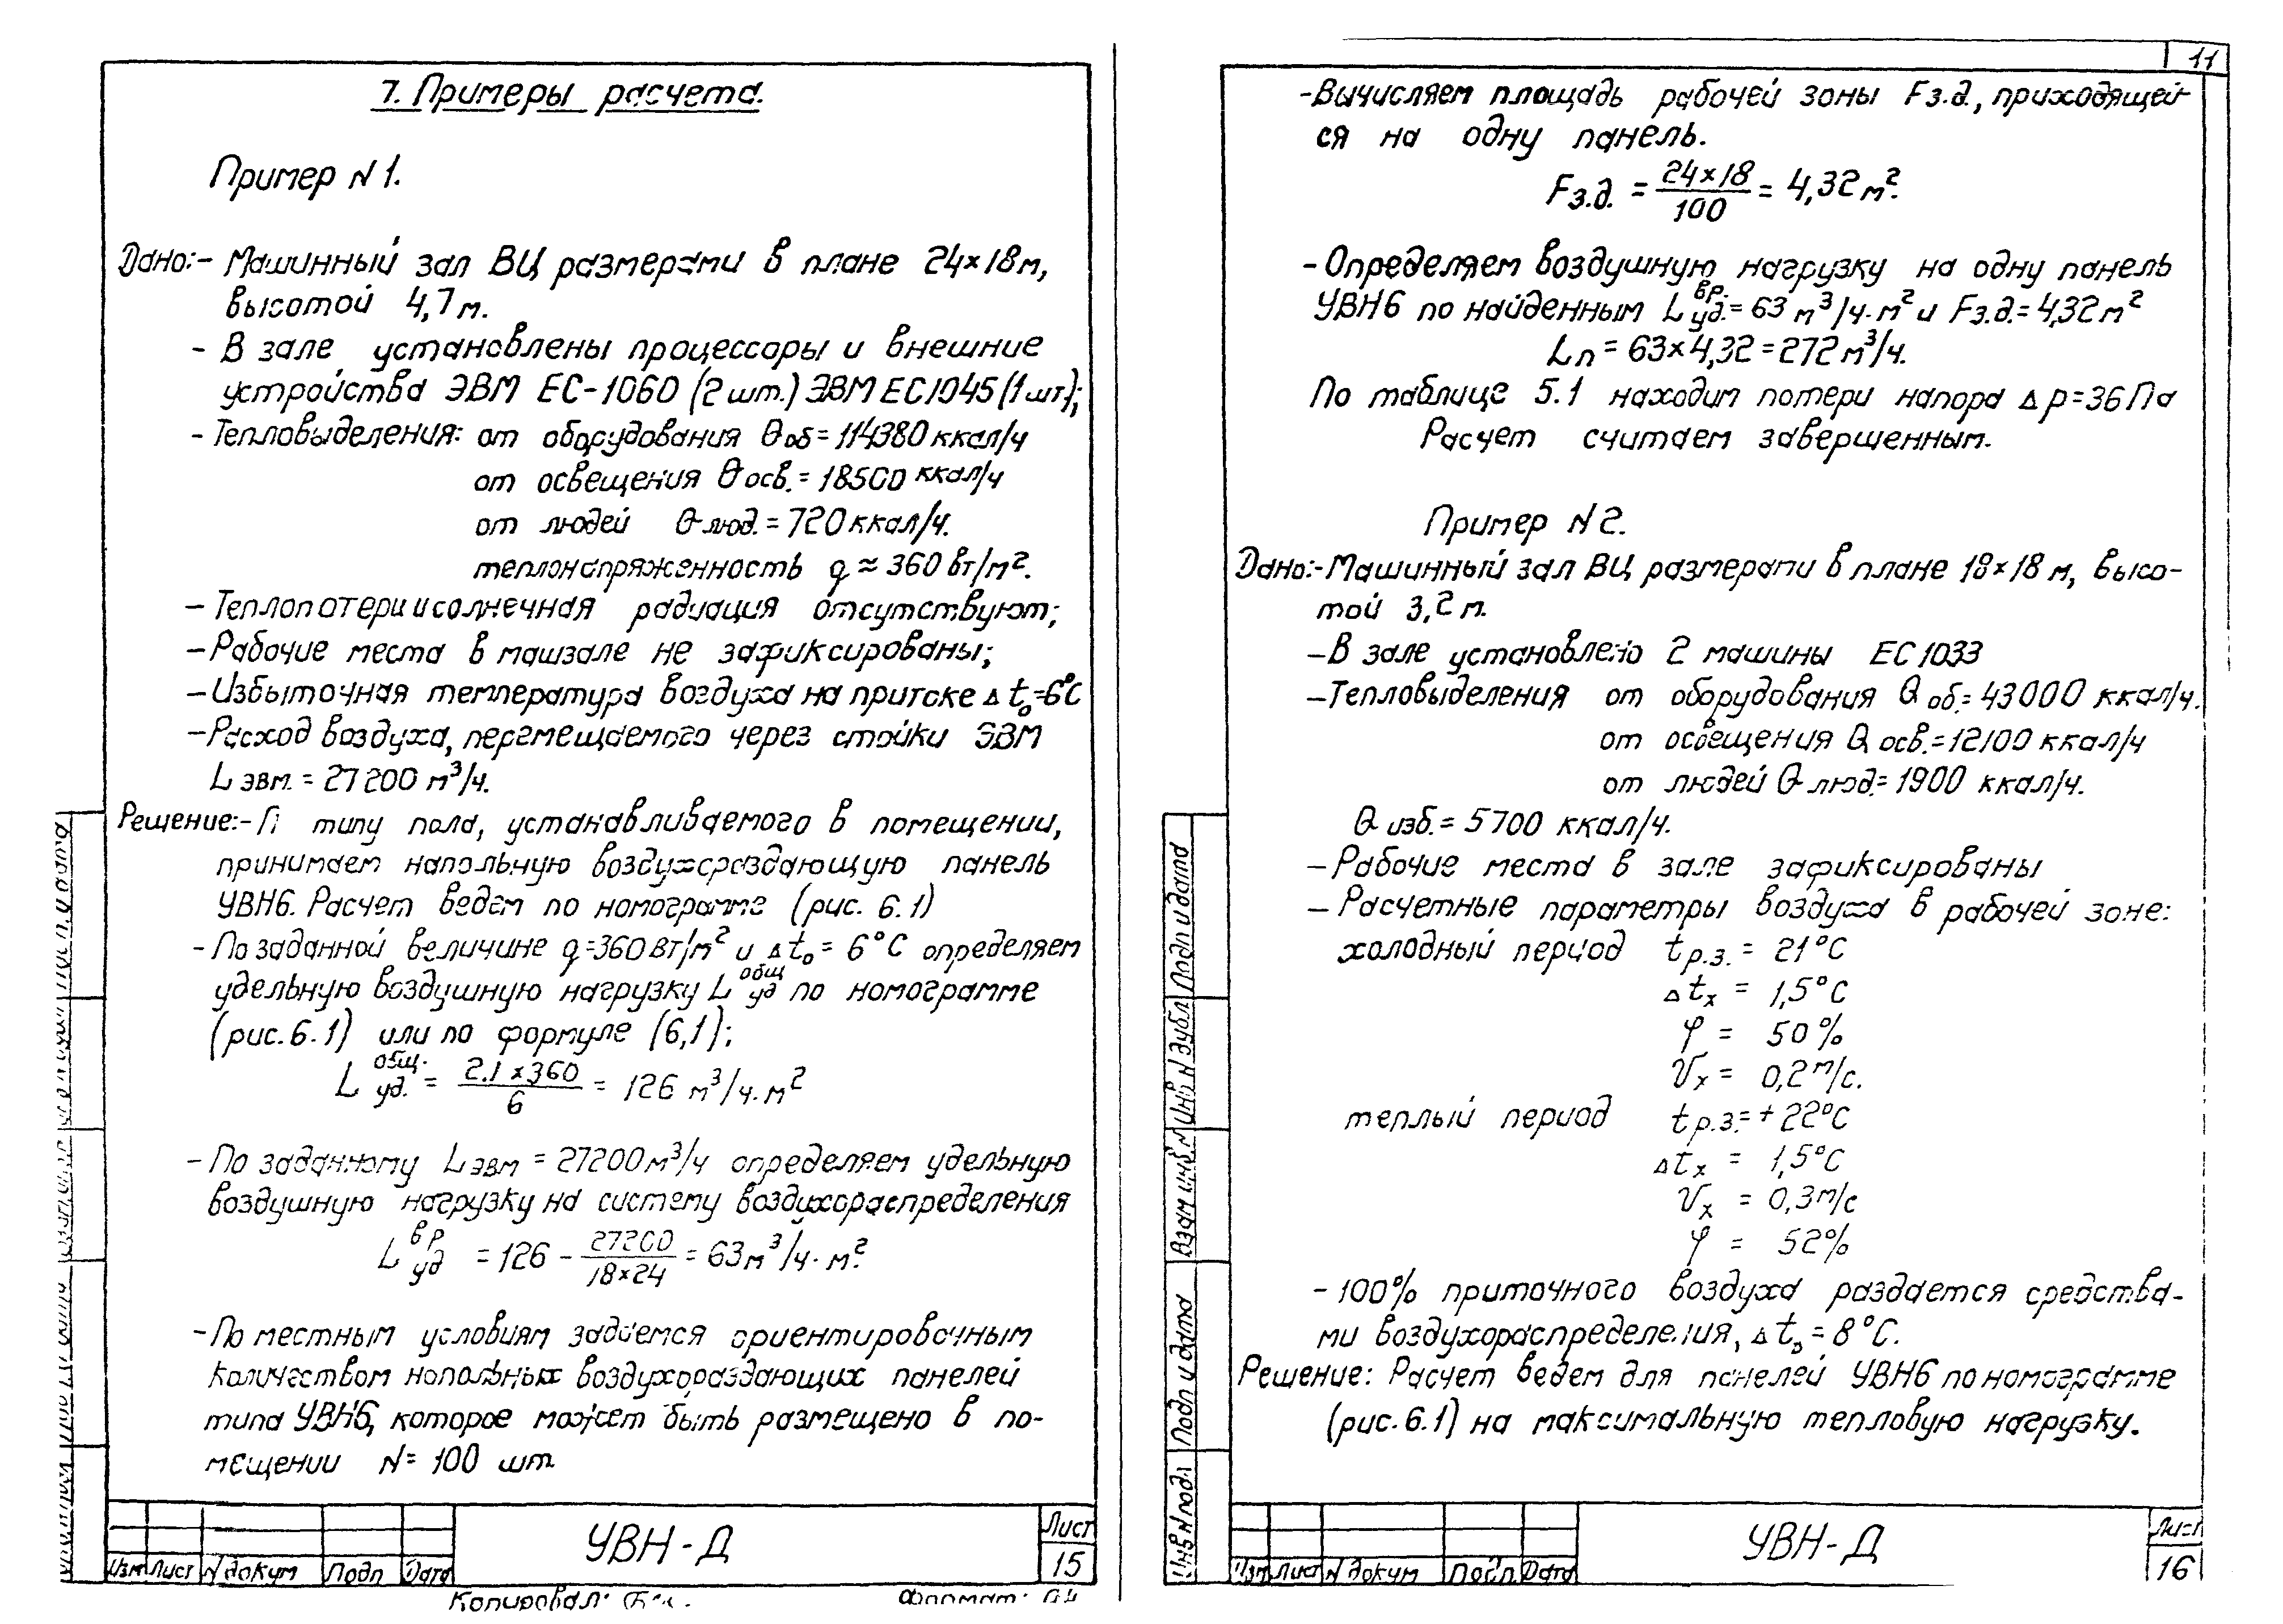 7. Примеры расчета.
Пример N 1.
Дано:- Машинный зал ВЦ размерами в плане 24×18м,
высотой 4,7м.
- В зале установлены процессоры и внешние
устройства ЭВМ ЕС-1060 (2 шт.) ЭВМ ЕС1045 (1 шт);
- Тепловыделения: от оборудования Qоб = 114380 ккал/ч
от освещения Qосв. = 18500 ккал/ч
от людей Qлюд. = 720 ккал/ч.
теплонапряженность q ≈ 360 вт/м².
- Теплопотери и солнечная радиация отсутствуют;
- Рабочие места в машзале не зафиксированы;
- Избыточная температура воздуха на притоке Δt₀=6°С
- Расход воздуха, перемещаемого через стойки ЭВМ
L эвм. = 27200 м³/ч.
Решение:- П типу пола, устанавливаемого в помещении,
принимаем напольную воздухораздающую панель
УВН6. Расчет ведем по номограмме (рис. 6.1)
- По заданной величине q=360 Вт/м² и Δt₀ = 6°С определяем
удельную воздушную нагрузку L общ уд по номограмме
(рис. 6.1) или по формуле (6,1);
L общ. уд. = 2.1 × 360 / 6 = 126 м³/ч.м²
- По заданному L эвм = 27200 м³/ч определяем удельную
воздушную нагрузку на систему воздухораспределения
L вр уд = 126 - 27200 / 18×24 = 63 м³/ч. м².
- По местным условиям задаемся ориентировочным
количеством напольных воздухораздающих панелей
типа УВН6, которое может быть размещено в по-
мещении N = 100 шт.
УВН-Д
Лист
15
Изм Лист N докум Подп Дата
Копировал:
Формат: А4
11
- Вычисляем площадь рабочей зоны Fз.д., приходящей-
ся на одну панель.
Fз.д. = 24×18 / 100 = 4,32 м².
- Определяем воздушную нагрузку на одну панель
УВН6 по найденным L вр. уд. = 63 м³/ч.м² и Fз.д. = 4,32 м²
Lп = 63×4,32 = 272 м³/ч.
По таблице 5.1 находим потери напора Δp=36 Па
Расчет считаем завершенным.
Пример N 2.
Дано:- Машинный зал ВЦ размерами в плане 18×18 м, высо-
той 3,2 м.
- В зале установлено 2 машины ЕС 1033
- Тепловыделения от оборудования Q об. = 43000 ккал/ч.
от освещения Q осв. = 12100 ккал/ч
от людей Q люд. = 1900 ккал/ч.
Q изб. = 5700 ккал/ч.
- Рабочие места в зале зафиксированы
- Расчетные параметры воздуха в рабочей зоне:
холодный период tр.з. = 21°С
Δtx = 1,5°С
φ = 50%
Vx = 0,2 м/с.
теплый период tр.з. = + 22°С
Δtx = 1,5°С
Vx = 0,3 м/с
φ = 52%
- 100% приточного воздуха раздается средства-
ми воздухораспределения, Δt₀ = 8°С.
Решение: Расчет ведем для панелей УВН6 по номограмме
(рис. 6.1) на максимальную тепловую нагрузку.
Подп и дата
Инв N дубл
Взам инв N
Подп и дата
Инв N подл
УВН-Д
Лист
16
Изм Лист N докум Подп. Дата